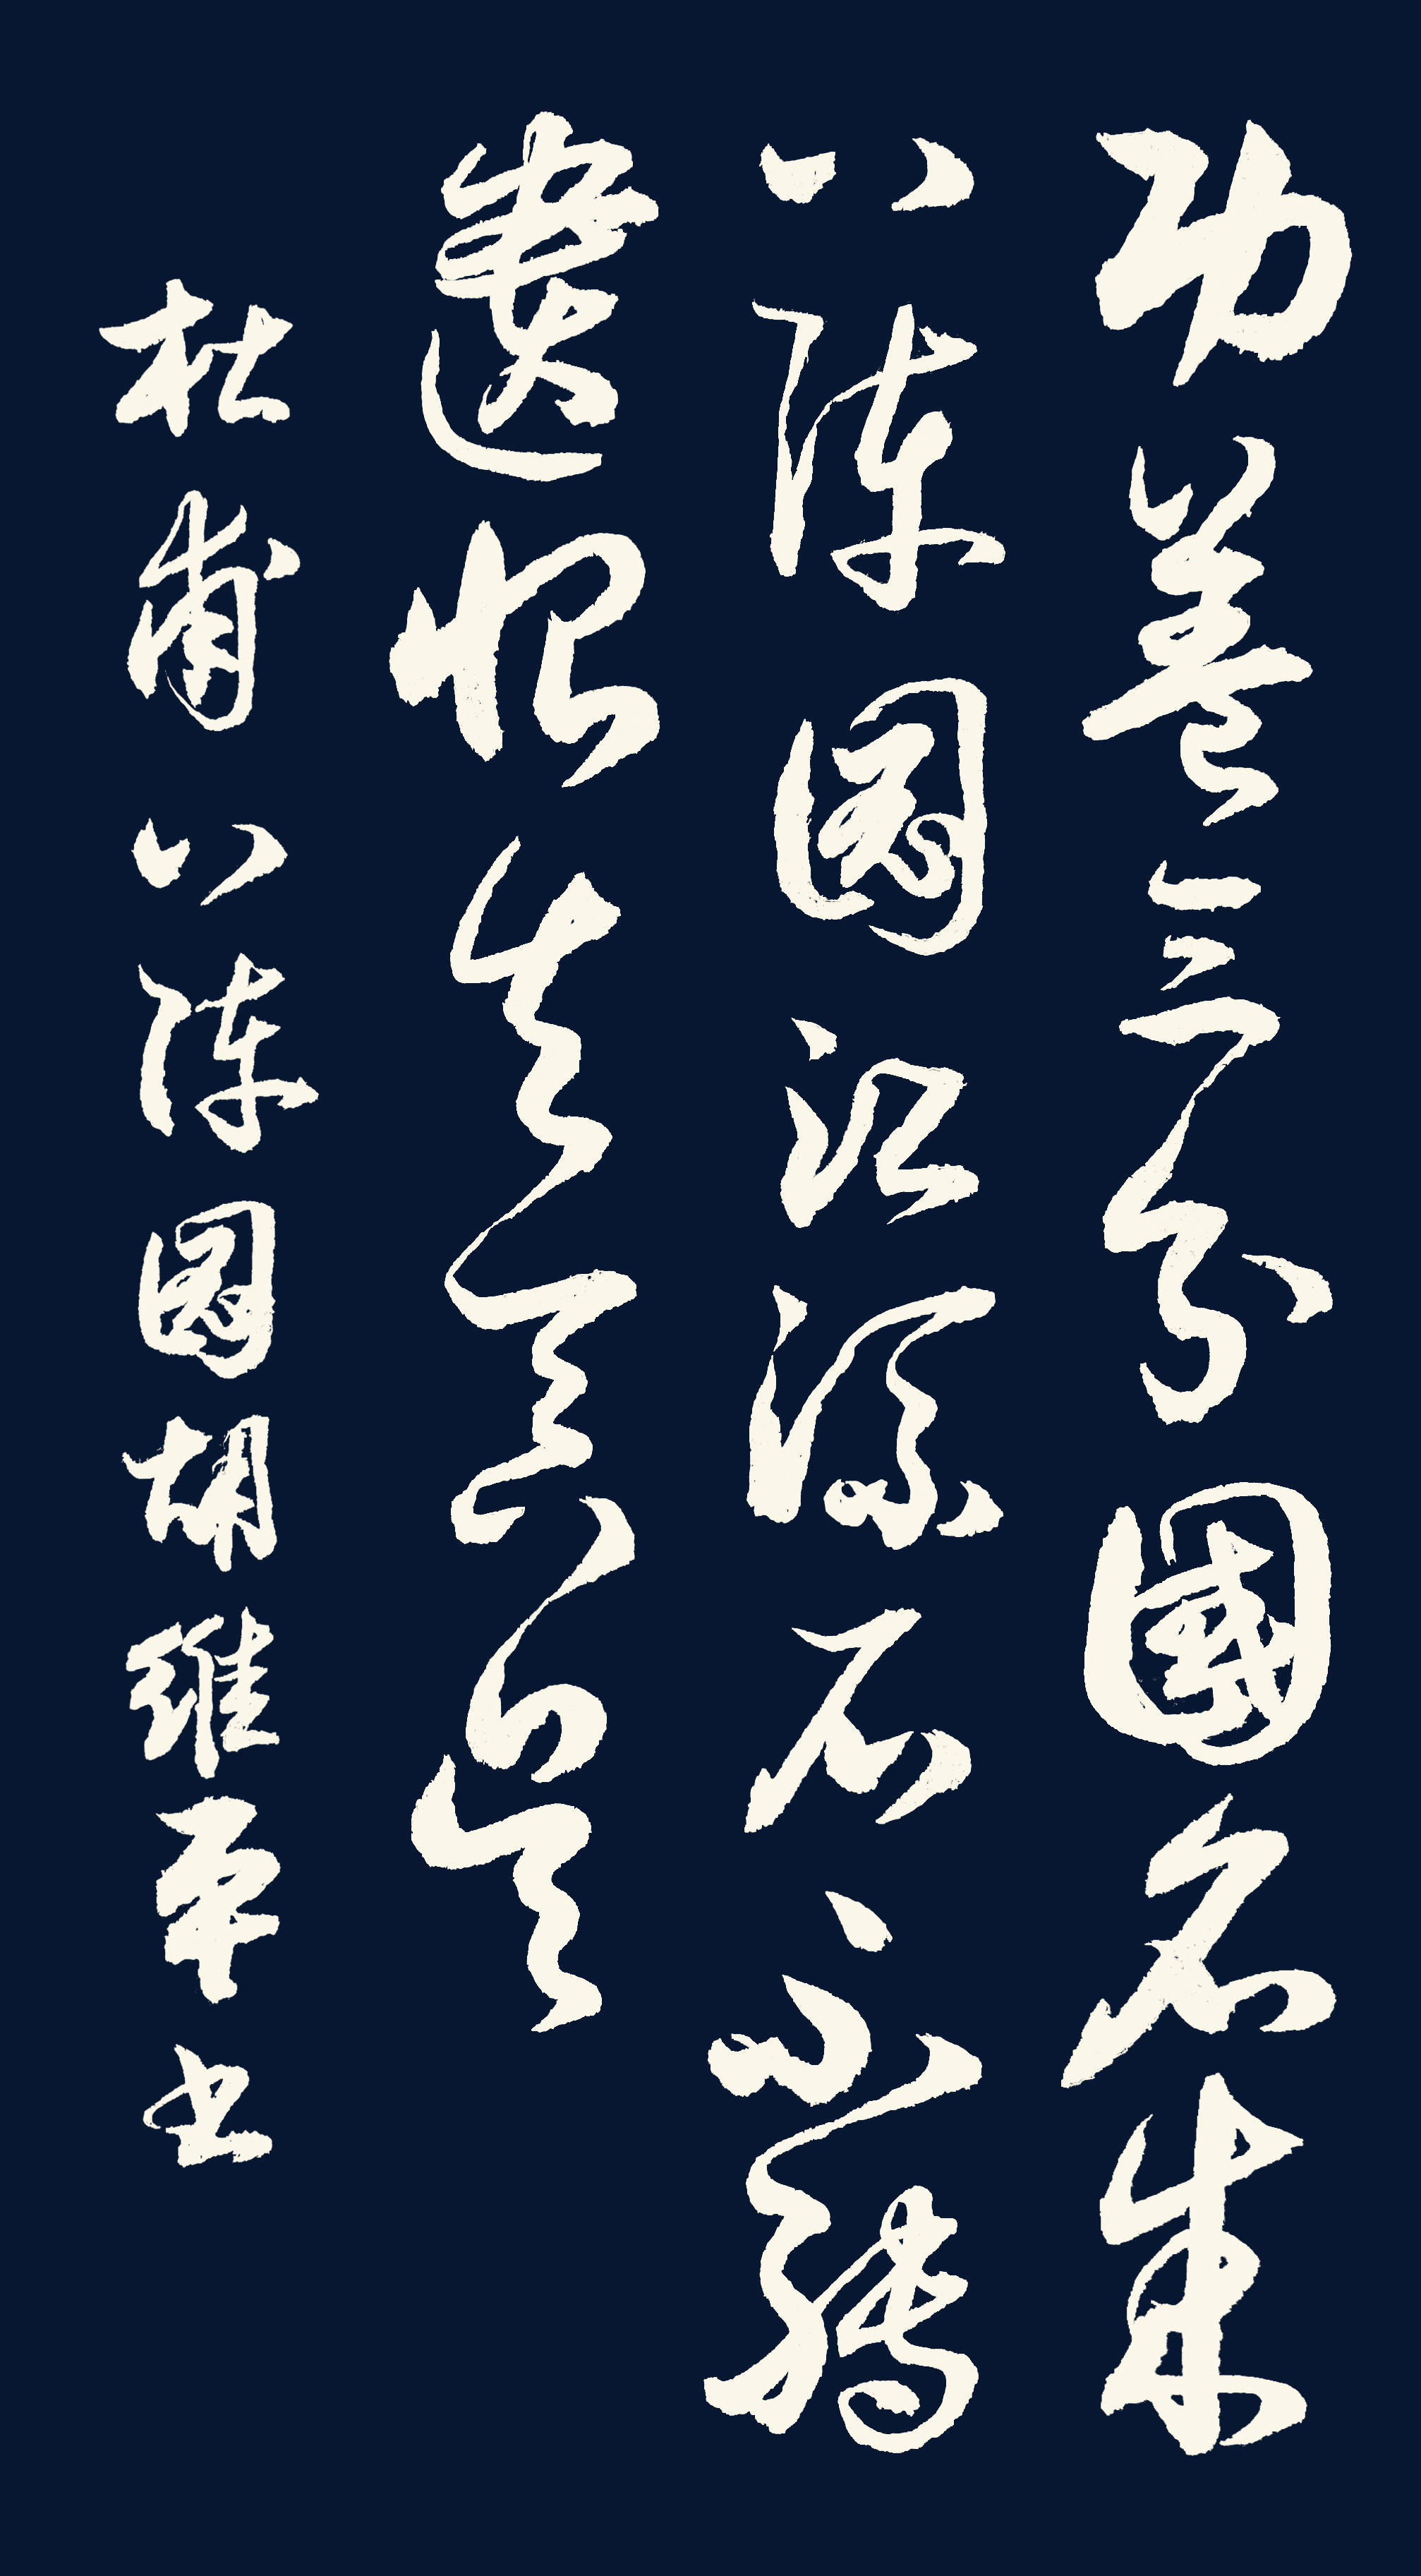 功蓋三分國名成
八陣圖江流石不轉
遺恨失吞吳
杜甫八陣圖胡維平書